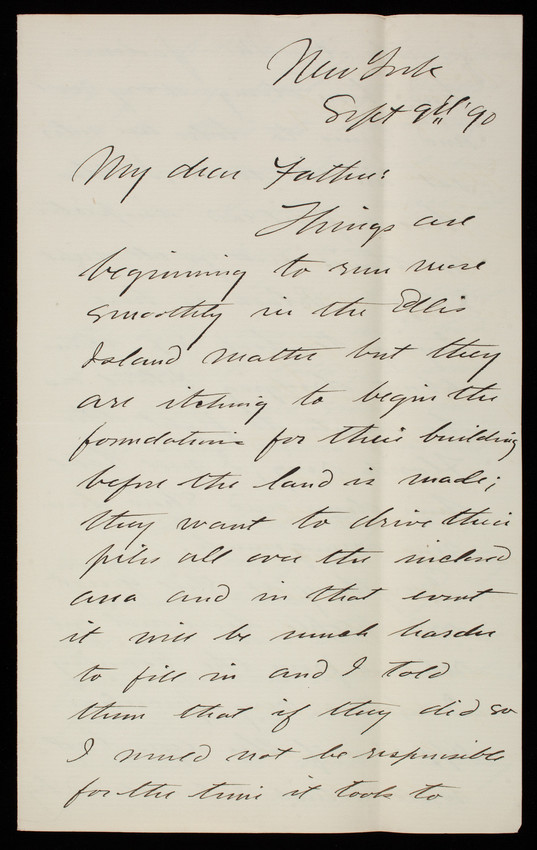 New York
Sept 9th '90
My dear Father:
Things are
beginning to run more
smoothly in the Ellis
Island matter but they
are itching to begin the
foundations for their building
before the land is made;
they want to drive their
piles all over the inclosed
area and in that event
it will be much harder
to fill in and I told
them that if they did so
I would not be responsible
for the time it took to